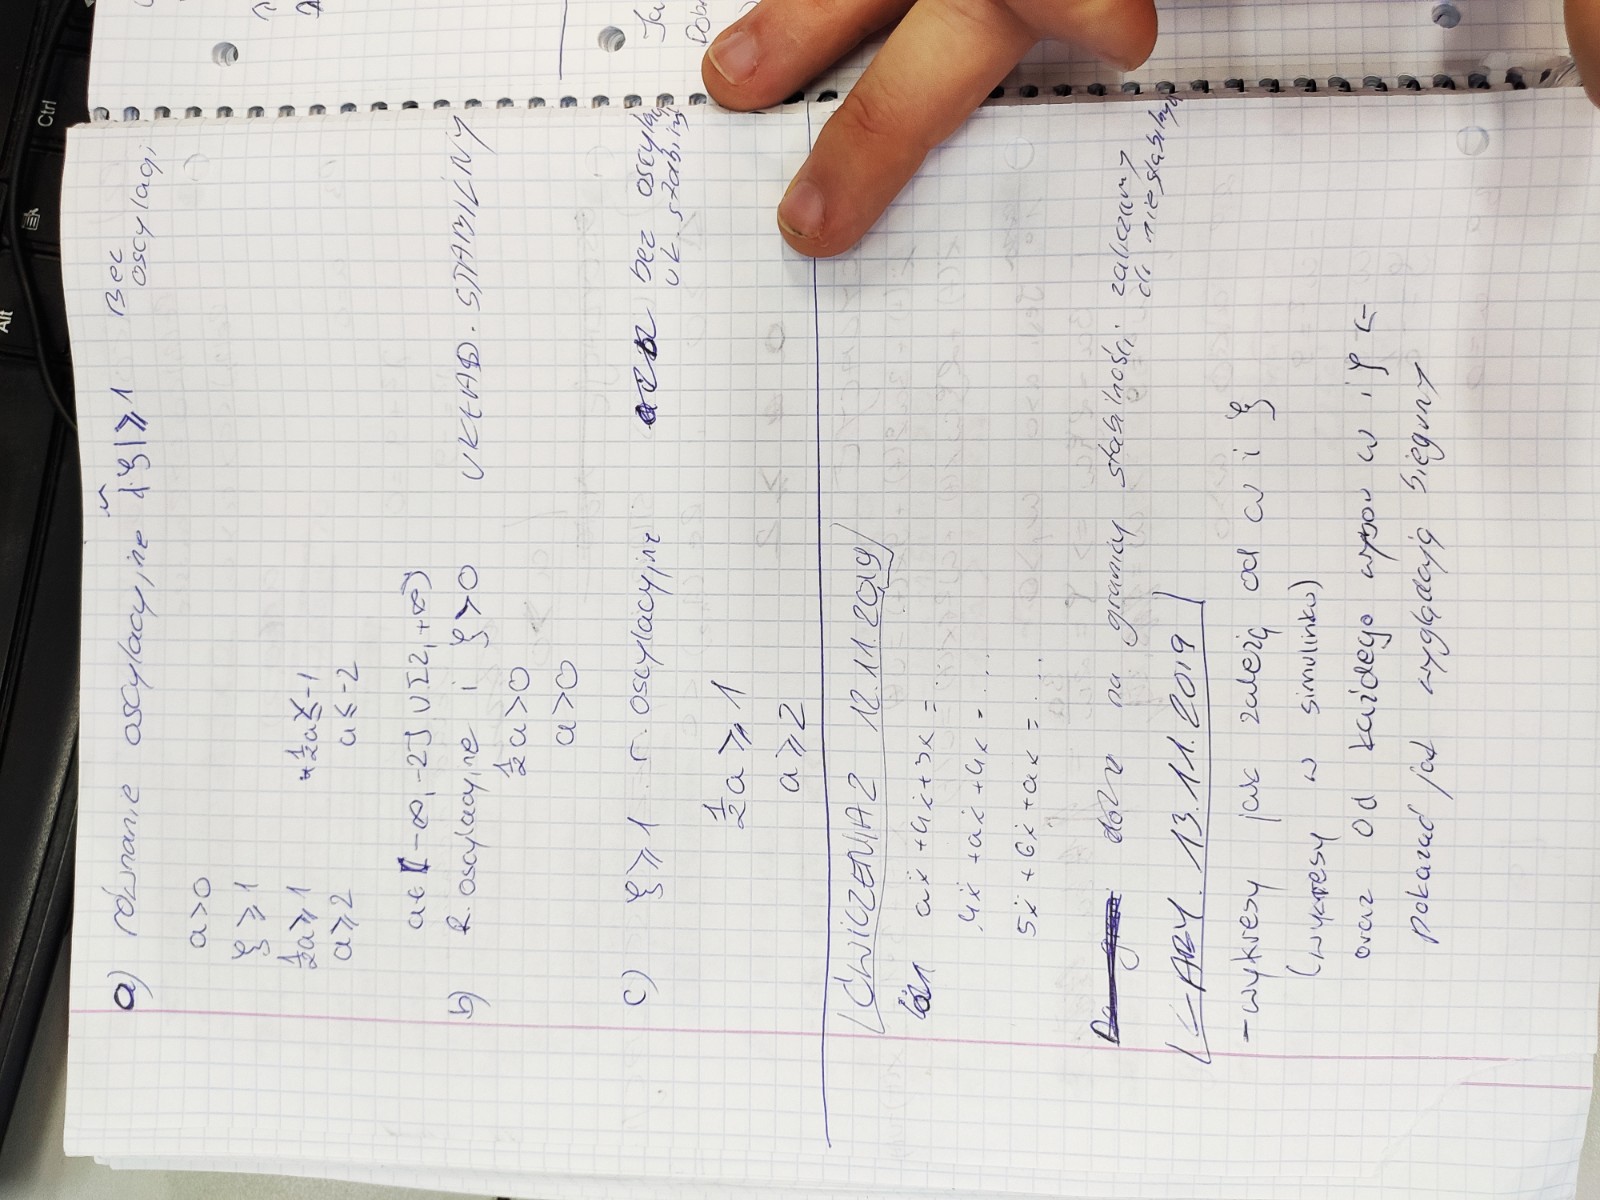 a) równanie oscylacyjne i |ξ| ⩾ 1 Bez
oscylacji
a>0
ξ ⩾ 1
½a ⩾ 1 ½a ≤ -1
a ⩾ 2 a ≤ -2
a∈(-∞,-2]∪[2,+∞)
b) R. oscylacyjne i ξ>0 UKŁAD. STABILNY
½a>0
a>0
c) ξ ⩾ 1 r. oscylacyjne bez oscyla
uk. stabilny
½a ⩾ 1
a ⩾ 2
ĆWICZENIA 2 12.11.2019
aẍ+4ẋ+3x=
4ẍ+aẋ+4x= ....
5ẍ+6ẋ+ax= ....
dolne na granicy stabilności zaliczamy
do niestabilnych
LABY. 13.11.2019
- wykresy jak zależą od ω i ξ
(wykresy w simulinku)
oraz od każdego ω i ξ ⇐
pokazać jak wyglądają bieguny
Ctrl
Alt